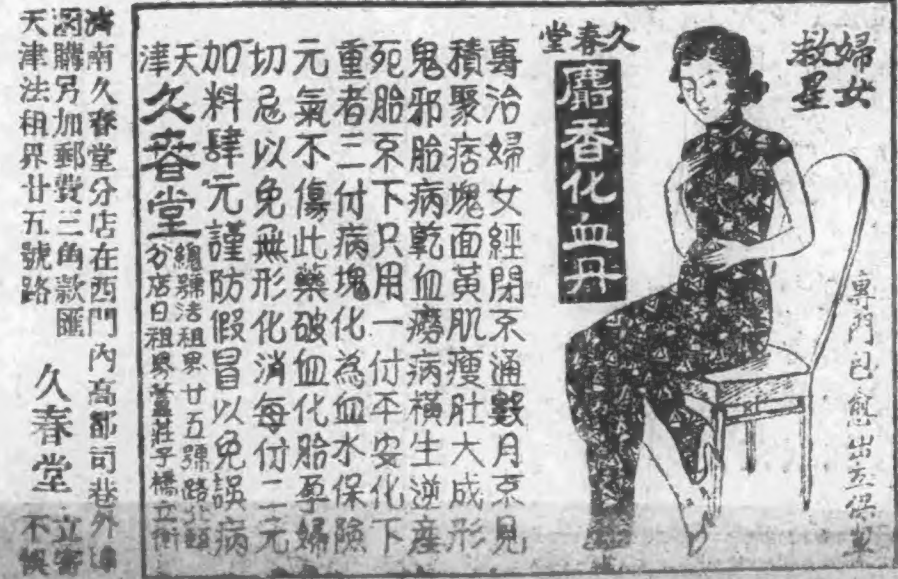 婦女
救星
專門包愈出立保單
久春堂
麝香化血丹
專治婦女經閉不通數月不見
積聚痞塊面黃肌瘦肚大成形
鬼邪胎病乾血癆病橫生逆產
死胎不下只用一付平安化下
重者三付病塊化為血水保險
元氣不傷此藥破血化胎孕婦
切忌以免無形化消每付二元
加料肆元謹防假冒以免誤病
天津
久春堂
總號法租界廿五號路北頭
分店日租界蘆莊子橋立街
濟南久春堂分店在西門內高都司巷外埠
函購另加郵費三角款匯
天津法租界廿五號路
久春堂
立寄
不悞